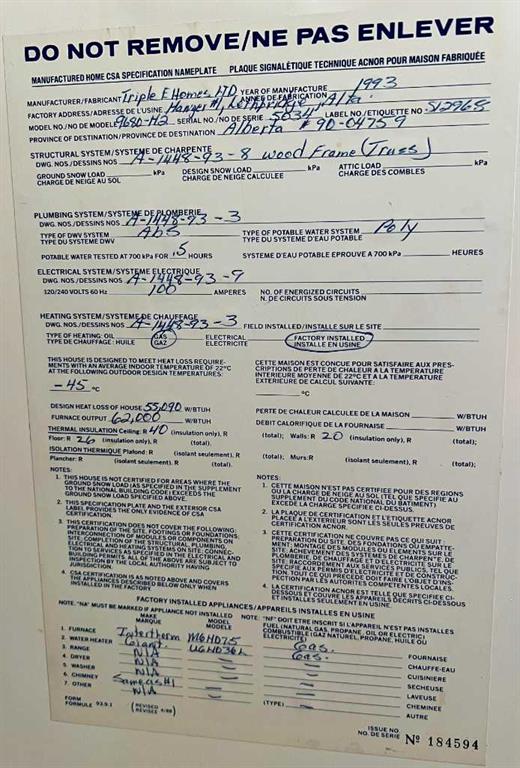 DO NOT REMOVE/NE PAS ENLEVER
MANUFACTURED HOME CSA SPECIFICATION NAMEPLATE PLAQUE SIGNALÉTIQUE TECHNIQUE ACNOR POUR MAISON FABRIQUÉE
MANUFACTURER/FABRICANT Triple E Homes LTD YEAR OF MANUFACTURE ANNÉE DE FABRICATION 1993
FACTORY ADDRESS/ADRESSE DE L'USINE #1 Lethbridge Alta.
MODEL NO./NO DE MODELE 9680-M2 SERIAL NO./NO DE SERIE 5034 LABEL NO./ETIQUETTE NO 512968
PROVINCE OF DESTINATION/PROVINCE DE DESTINATION Alberta #90-04759
STRUCTURAL SYSTEM/SYSTEME DE CHARPENTE
DWG. NOS./DESSINS NOS A-1448-93-8 wood Frame (Truss)
GROUND SNOW LOAD kPa DESIGN SNOW LOAD kPa ATTIC LOAD kPa
CHARGE DE NEIGE AU SOL CHARGE DE NEIGE CALCULEE CHARGE DES COMBLES
PLUMBING SYSTEM/SYSTEME DE PLOMBERIE
DWG. NOS./DESSINS NOS A-1448-93-3
TYPE OF DWV SYSTEM ABS TYPE OF POTABLE WATER SYSTEM Poly
TYPE DU SYSTEME DWV TYPE DU SYSTEME D'EAU POTABLE
POTABLE WATER TESTED AT 700 kPa FOR .5 HOURS SYSTEME D'EAU POTABLE EPROUVE A 700 kPa HEURES
ELECTRICAL SYSTEM/SYSTEME ELECTRIQUE
DWG. NOS./DESSINS NOS A-1448-93-9
120/240 VOLTS 60 Hz 100 AMPERES NO. OF ENERGIZED CIRCUITS
N. DE CIRCUITS SOUS TENSION
HEATING SYSTEM/SYSTEME DE CHAUFFAGE
DWG. NOS./DESSINS NOS A-1448-93-3 FIELD INSTALLED/INSTALLE SUR LE SITE
TYPE OF HEATING: OIL GAS ELECTRICAL FACTORY INSTALLED
TYPE DE CHAUFFAGE: HUILE GAZ ELECTRICITE INSTALLE EN USINE
THIS HOUSE IS DESIGNED TO MEET HEAT LOSS REQUIRE-
MENTS WITH AN AVERAGE INDOOR TEMPERATURE OF 22°C
AT THE FOLLOWING OUTDOOR DESIGN TEMPERATURES:
-45 °C
CETTE MAISON EST CONCUE POUR SATISFAIRE AUX PRES-
CRIPTIONS DE PERTE DE CHALEUR A LA TEMPERATURE
INTERIEURE MOYENNE DE 22°C ET A LA TEMPERATURE
EXTERIEURE DE CALCUL SUIVANTE:
°C
DESIGN HEAT LOSS OF HOUSE 55,090 W/BTUH PERTE DE CHALEUR CALCULEE DE LA MAISON W/BTUH
FURNACE OUTPUT 62,000 W/BTUH DEBIT CALORIFIQUE DE LA FOURNAISE W/BTUH
THERMAL INSULATION Ceiling: R 40 (insulation only), R (total); Walls: R 20 (insulation only), R
Floor: R 26 (insulation only), R (total); (total);
ISOLATION THERMIQUE Plafond: R (isolant seulement), R (total); Murs: R (isolant seulement), R
Plancher: R (isolant seulement), R (total); (total);
NOTES:
1. THIS HOUSE IS NOT CERTIFIED FOR AREAS WHERE THE
GROUND SNOW LOAD (AS SPECIFIED IN THE SUPPLEMENT
TO THE NATIONAL BUILDING CODE) EXCEEDS THE
GROUND SNOW LOAD SPECIFIED ABOVE.
2. THIS SPECIFICATION PLATE AND THE EXTERIOR CSA
LABEL PROVIDES THE ONLY EVIDENCE OF CSA
CERTIFICATION.
3. THIS CERTIFICATION DOES NOT COVER THE FOLLOWING:
PREPARATION OF THE SITE, FOOTINGS OR FOUNDATIONS;
INTERCONNECTION OF MODULES OR COMPONENTS ON
SITE; COMPLETION OF THE STRUCTURAL, PLUMBING,
TION TO SERVICES AS SPECIFIED IN THE ELECTRICAL AND
BUILDING PERMITS. ALL OF THE ABOVE ARE SUBJECT TO
INSPECTION BY THE LOCAL AUTHORITY HAVING
JURISDICTION.
4. CSA CERTIFICATION IS AS NOTED ABOVE AND COVERS
THE APPLIANCES DESCRIBED BELOW ONLY WHEN
INSTALLED IN THE FACTORY
NOTES:
1. CETTE MAISON N'EST PAS CERTIFIEE POUR DES REGIONS
OU LA CHARGE DE NEIGE AU SOL (TEL QUE SPECIFIE AU
SUPPLEMENT DU CODE NATIONAL DU BATIMENT)
EXCEDE LA CHARGE SPECIFIEE CI-DESSUS.
2. LA PLAQUE DE CERTIFICATION ET L'ETIQUETTE ACNOR
PLACEE A L'EXTERIEUR SONT LES SEULES PREUVES DE
CERTIFICATION ACNOR.
3. CETTE CERTIFICATION NE COUVRE PAS CE QUI SUIT:
PREPARATION DU SITE, DES FONDATIONS OU EMPATTE-
MENT; MONTAGE DES MODULES OU ELEMENTS SUR LE
SITE, ACHEVEMENT DES SYSTEMES DE CHARPENTE, DE
PLOMBERIE, DE CHAUFFAGE ET D'ELECTRICITE SUR LE
SITE; RACCORDEMENT AUX SERVICES PUBLICS, TEL QUE
SPECIFIE AUX PERMIS D'ELECTRICITE ET DE CONSTRUC-
TION. TOUT CE QUI PRECEDE DOIT FAIRE L'OBJET D'INS-
PECTION PAR LES AUTORITES COMPETENTES LOCALES.
4. LA CERTIFICATION ACNOR EST TELLE QUE SPECIFIEE CI-
DESSUS ET COUVRE LES APPAREILS DECRITS CI-DESSOUS
ET INSTALLES SEULEMENT EN USINE.
FACTORY INSTALLED APPLIANCES/APPAREILS INSTALLES EN USINE
NOTE. "NA" MUST BE MARKED IF APPLIANCE NOT INSTALLED NOTE: "NF" DOIT ETRE INSCRIT SI L'APPAREIL N'EST PAS INSTALLE
MAKE MARQUE MODEL MODELE FUEL (NATURAL GAS, PROPANE, OIL OR ELECTRIC)
COMBUSTIBLE (GAZ NATUREL, PROPANE, HUILE OU ELECTRICITE)
1. FURNACE Intertherm MGHD75 Gas. FOURNAISE
2. WATER HEATER Giant UGHD36L Gas. CHAUFFE-EAU
3. RANGE N/A CUISINIERE
4. DRYER N/A SECHEUSE
5. WASHER N/A LAVEUSE
6. CHIMNEY Same as #1 (TYPE) CHEMINEE
7. OTHER N/A AUTRE
FORM FORMULE 93.9.1 (REVISED REVISEE 4/88)
ISSUE NO
NO. DE SERIE Nº 184594